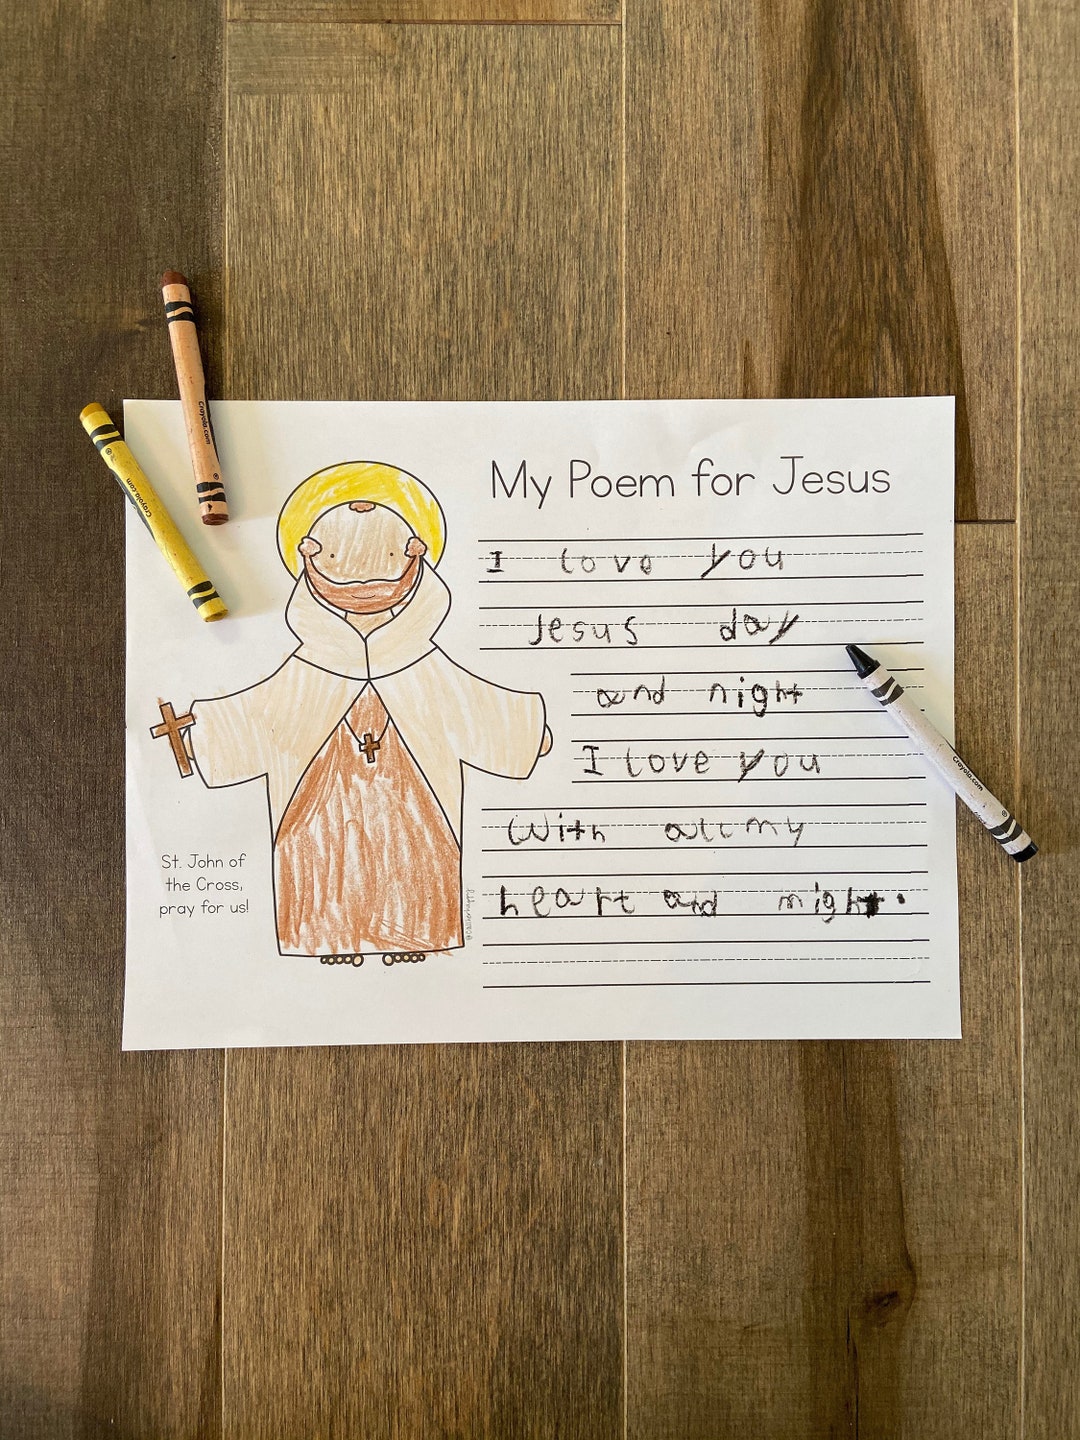 My Poem for Jesus
I love you
Jesus day
and night
I love you
With all my
heart and might.
St. John of
the Cross,
pray for us!
Crayola.com
Crayola.com
Crayola.com